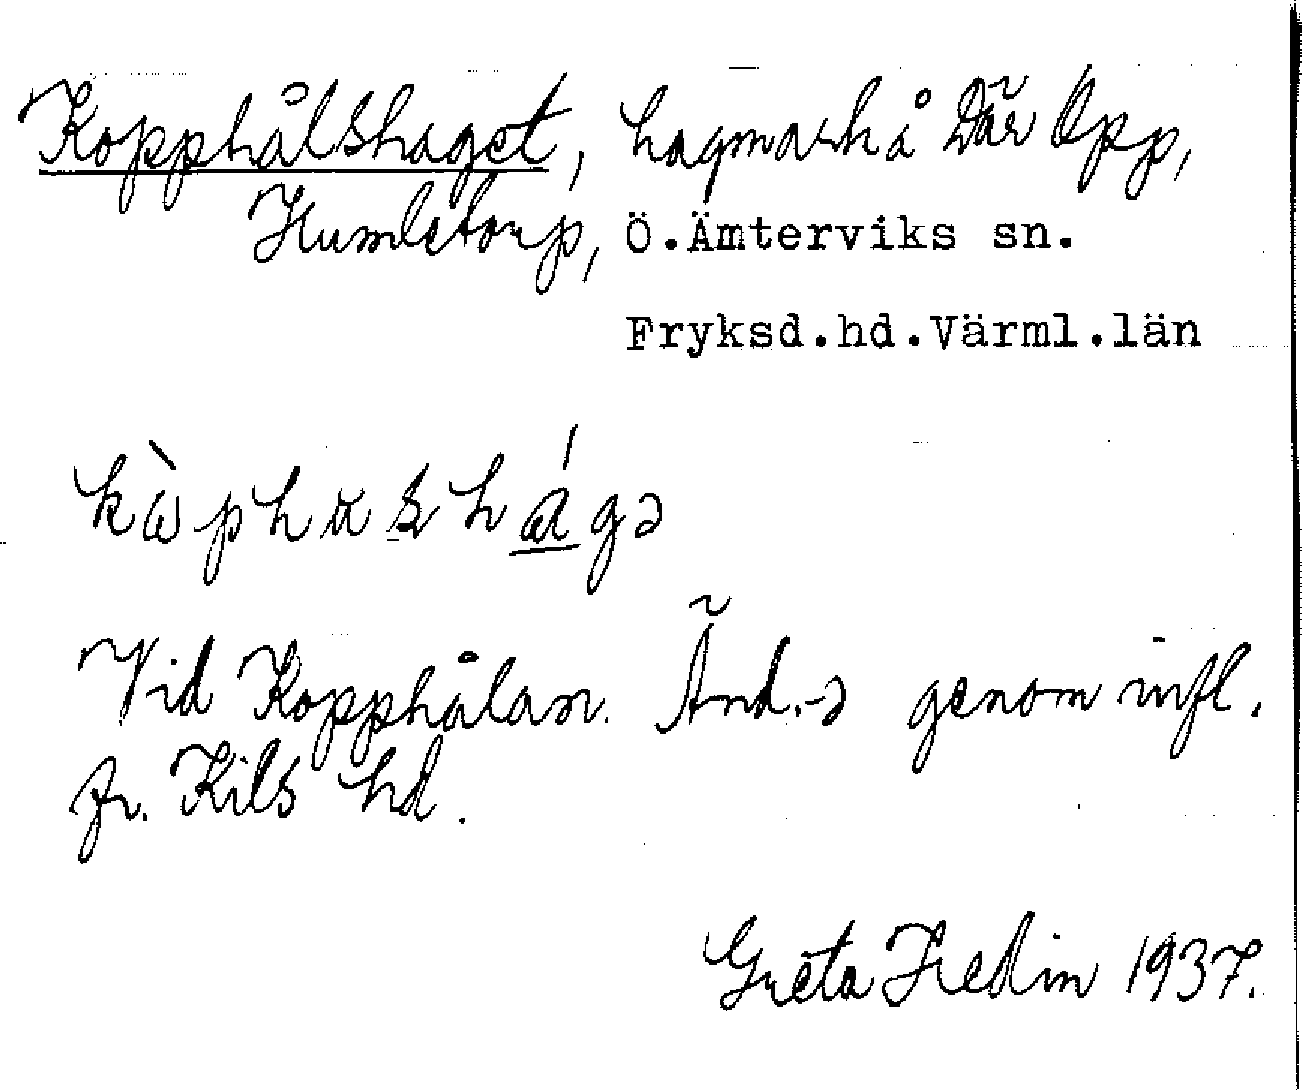 Kopphålshaget, hagmark å Där Opp,
Humletorp, Ö.Ämterviks sn.
Fryksd.hd.Värml.län
kὼphαshágə
Vid Kopphålan. Änd.-ə genom infl.
fr. Kils hd.
Greta Hedin 1937.